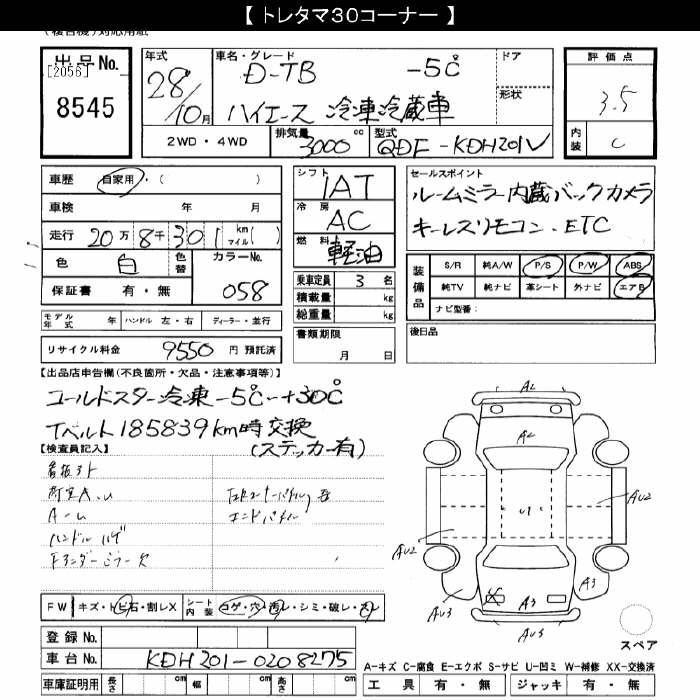 【 トレタマ30コーナー 】
出品No.
[2056]
8545
年式
28/10月
車名・グレード
D-TB -5℃
ハイエース 冷凍冷蔵車
ドア
形状
2WD・4WD
排気量 3000 cc
型式 QDF-KDH201V
評価点
3.5
内装 C
車歴 自家用・( )
車検 年 月
走行 20万8千301 km マイル( )
色 白 色替
カラーNo.
058
保証書 有・無
シフト IAT
冷房 AC
燃料 軽油
乗車定員 3 名
積載量 kg
総重量 kg
書類期限
月 日
セールスポイント
ルームミラー内蔵バックカメラ
キーレスリモコン.ETC
装備品
S/R 純A/W P/S P/W ABS
純TV 純ナビ 革シート 外ナビ エアB
ナビ型番:
モデル年式 年 ハンドル 左・右 ディーラー・並行
リサイクル料金 9550 円 預託済
後日品
【出品店申告欄(不良箇所・欠品・注意事項等)】
コールドスター冷凍-5℃~+30℃
Tベルト185839km時交換
(ステッカー有)
【検査員記入】
看板3ト
A-ム
ハンドル ハゲ
エンドパネル
FW キズ・トビ石・割レX
シート内装 コゲ・穴・汚レ・シミ・破レ・スレ
登録No.
車台No. KDH201-0208275
車庫証明用 長さ cm 幅 cm 高さ cm
A2
A2
U1
AU2
AU2
AU3
A3
A3
AU3
X
スペア
A-キズ C-腐食 E-エクボ S-サビ U-凹ミ W-補修 XX-交換済
工具 有・無 ジャッキ 有・無